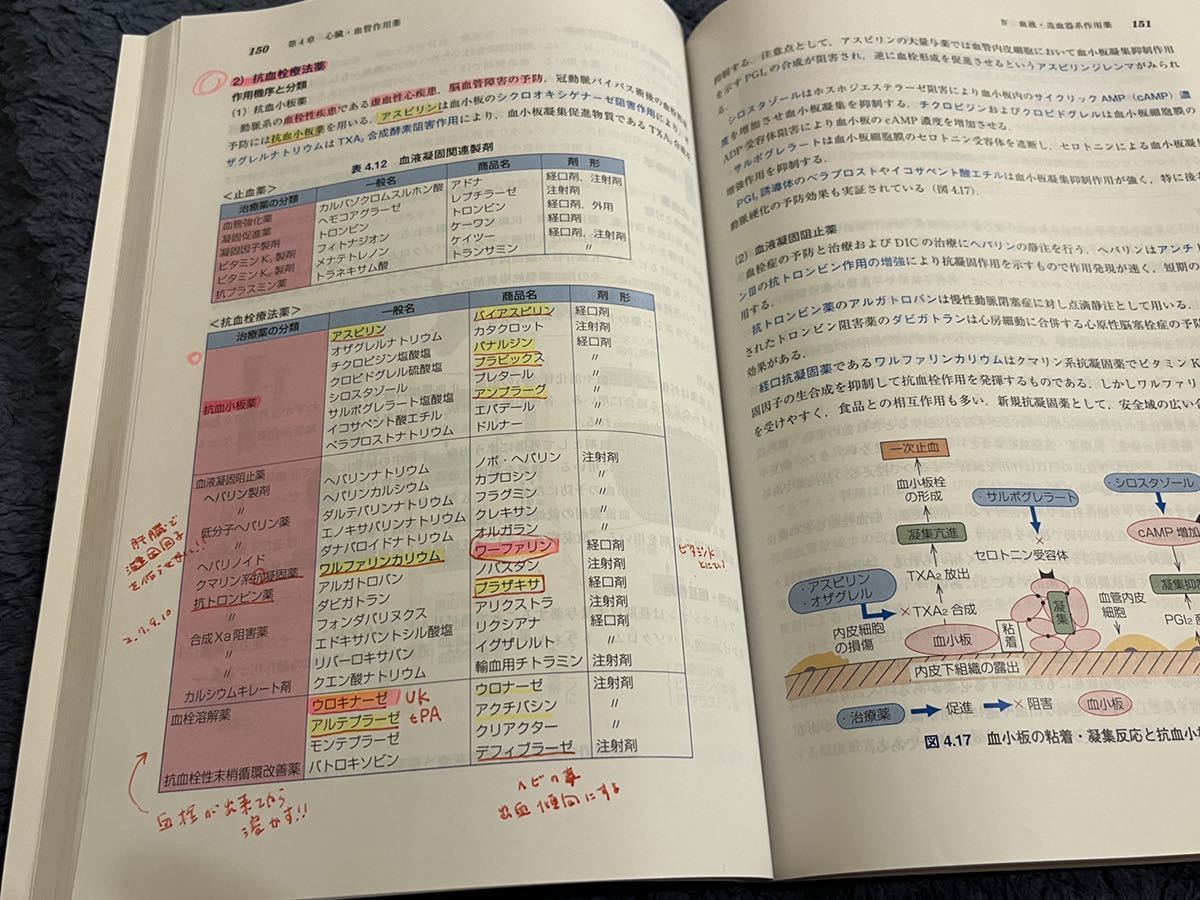 150 第4章 心臓・血管作用薬
2) 抗血栓療法薬
作用機序と分類
(1) 抗血小板薬
動脈系の血栓性疾患である虚血性心疾患,脳血管障害の予防,冠動脈バイパス術後の血
予防には抗血小板薬を用いる.アスピリンは血小板のシクロオキシゲナーゼ阻害作用により,
ザグレルナトリウムは TXA₂ 合成酵素阻害作用により,血小板凝集促進物質である TXA₂
表 4.12 血液凝固関連製剤
<止血薬>
治療薬の分類 一般名 商品名 剤 形
血管強化薬 カルバゾクロムスルホン酸 アドナ 経口剤,注射剤
凝固促進薬 ヘモコアグラーゼ レプチラーゼ 注射剤
凝固因子製剤 トロンビン トロンビン 経口剤,外用
ビタミンK₁製剤 フィトナジオン ケーワン 経口剤
ビタミンK₂製剤 メナテトレノン ケイツー 経口剤,注射剤
抗プラスミン薬 トラネキサム酸 トランサミン 〃
<抗血栓療法薬>
治療薬の分類 一般名 商品名 剤 形
抗血小板薬 アスピリン バイアスピリン 経口剤
オザグレルナトリウム カタクロット 注射剤
チクロピジン塩酸塩 パナルジン 経口剤
クロピドグレル硫酸塩 プラビックス 〃
シロスタゾール プレタール 〃
サルポグレラート塩酸塩 アンプラーグ 〃
イコサペント酸エチル エパデール 〃
ベラプロストナトリウム ドルナー 〃
血液凝固阻止薬
ヘパリン製剤 ヘパリンナトリウム ノボ・ヘパリン 注射剤
〃 ヘパリンカルシウム カプロシン 〃
低分子ヘパリン薬 ダルテパリンナトリウム フラグミン 〃
〃 エノキサパリンナトリウム クレキサン 〃
ヘパリノイド ダナパロイドナトリウム オルガラン 〃
クマリン系抗凝固薬 ワルファリンカリウム ワーファリン 経口剤
抗トロンビン薬 アルガトロバン ノバスタン 注射剤
〃 ダビガトラン プラザキサ 経口剤
合成Xa阻害薬 フォンダパリヌクス アリクストラ 注射剤
〃 エドキサバントシル酸塩 リクシアナ 経口剤
〃 リバーロキサバン イグザレルト 〃
カルシウムキレート剤 クエン酸ナトリウム 輸血用チトラミン 注射剤
血栓溶解薬 ウロキナーゼ UK ウロナーゼ 注射剤
アルテプラーゼ tPA アクチバシン 〃
モンテプラーゼ クリアクター 〃
抗血栓性末梢循環改善薬 バトロキソビン デフィブラーゼ 注射剤
肝臓で
凝固因子
2.7.9.10
血栓が出来てから
溶かす!!
ヘビの毒
出血傾向にする
Ⅳ 血液・造血器系作用薬 151
抑制する.注意点として,アスピリンの大量与薬では血管内皮細胞において血小板凝集抑制作用
を示すPGI₂の合成が阻害され,逆に血栓形成を促進させるというアスピリンジレンマがみられ
シロスタゾールはホスホジエステラーゼ阻害により血小板内のサイクリック AMP (cAMP) 濃
度を増加させ血小板凝集を抑制する.チクロピジンおよびクロピドグレルは血小板細胞膜の
ADP 受容体阻害により血小板の cAMP 濃度を増加させる.
サルポグレラートは血小板細胞膜のセロトニン受容体を遮断し,セロトニンによる血小板凝
増強作用を抑制する.
PGI₂ 誘導体のベラプロストやイコサペント酸エチルは血小板凝集抑制作用が強く,特に後
動脈硬化の予防効果も実証されている (図 4.17).
(2) 血液凝固阻止薬
血栓症の予防と治療および DIC の治療にヘパリンの静注を行う.ヘパリンはアンチ
ンⅢの抗トロンビン作用の増強により抗凝固作用を示すもので作用発現が速く,短期の
用する.
抗トロンビン薬のアルガトロバンは慢性動脈閉塞症に対し点滴静注として用いる.
されたトロンビン阻害薬のダビガトランは心房細動に合併する心原性脳塞栓症の予防
効果がある.
経口抗凝固薬であるワルファリンカリウムはクマリン系抗凝固薬でビタミン K
固因子の生合成を抑制して抗血栓作用を発揮するものである.しかしワルファリ
を受けやすく,食品との相互作用も多い.新規抗凝固薬として,安全域の広い
一次止血
血小板栓
の形成
・サルポグレラート
シロスタゾール
凝集亢進
セロトニン受容体
cAMP 増加
TXA₂ 放出
・アスピリン
・オザグレル
×TXA₂ 合成
凝集
血管内皮
細胞
凝集抑
PGI₂
内皮細胞
の損傷
血小板
粘着
内皮下組織の露出
治療薬 促進 × 阻害 血小板
図 4.17 血小板の粘着・凝集反応と抗血小